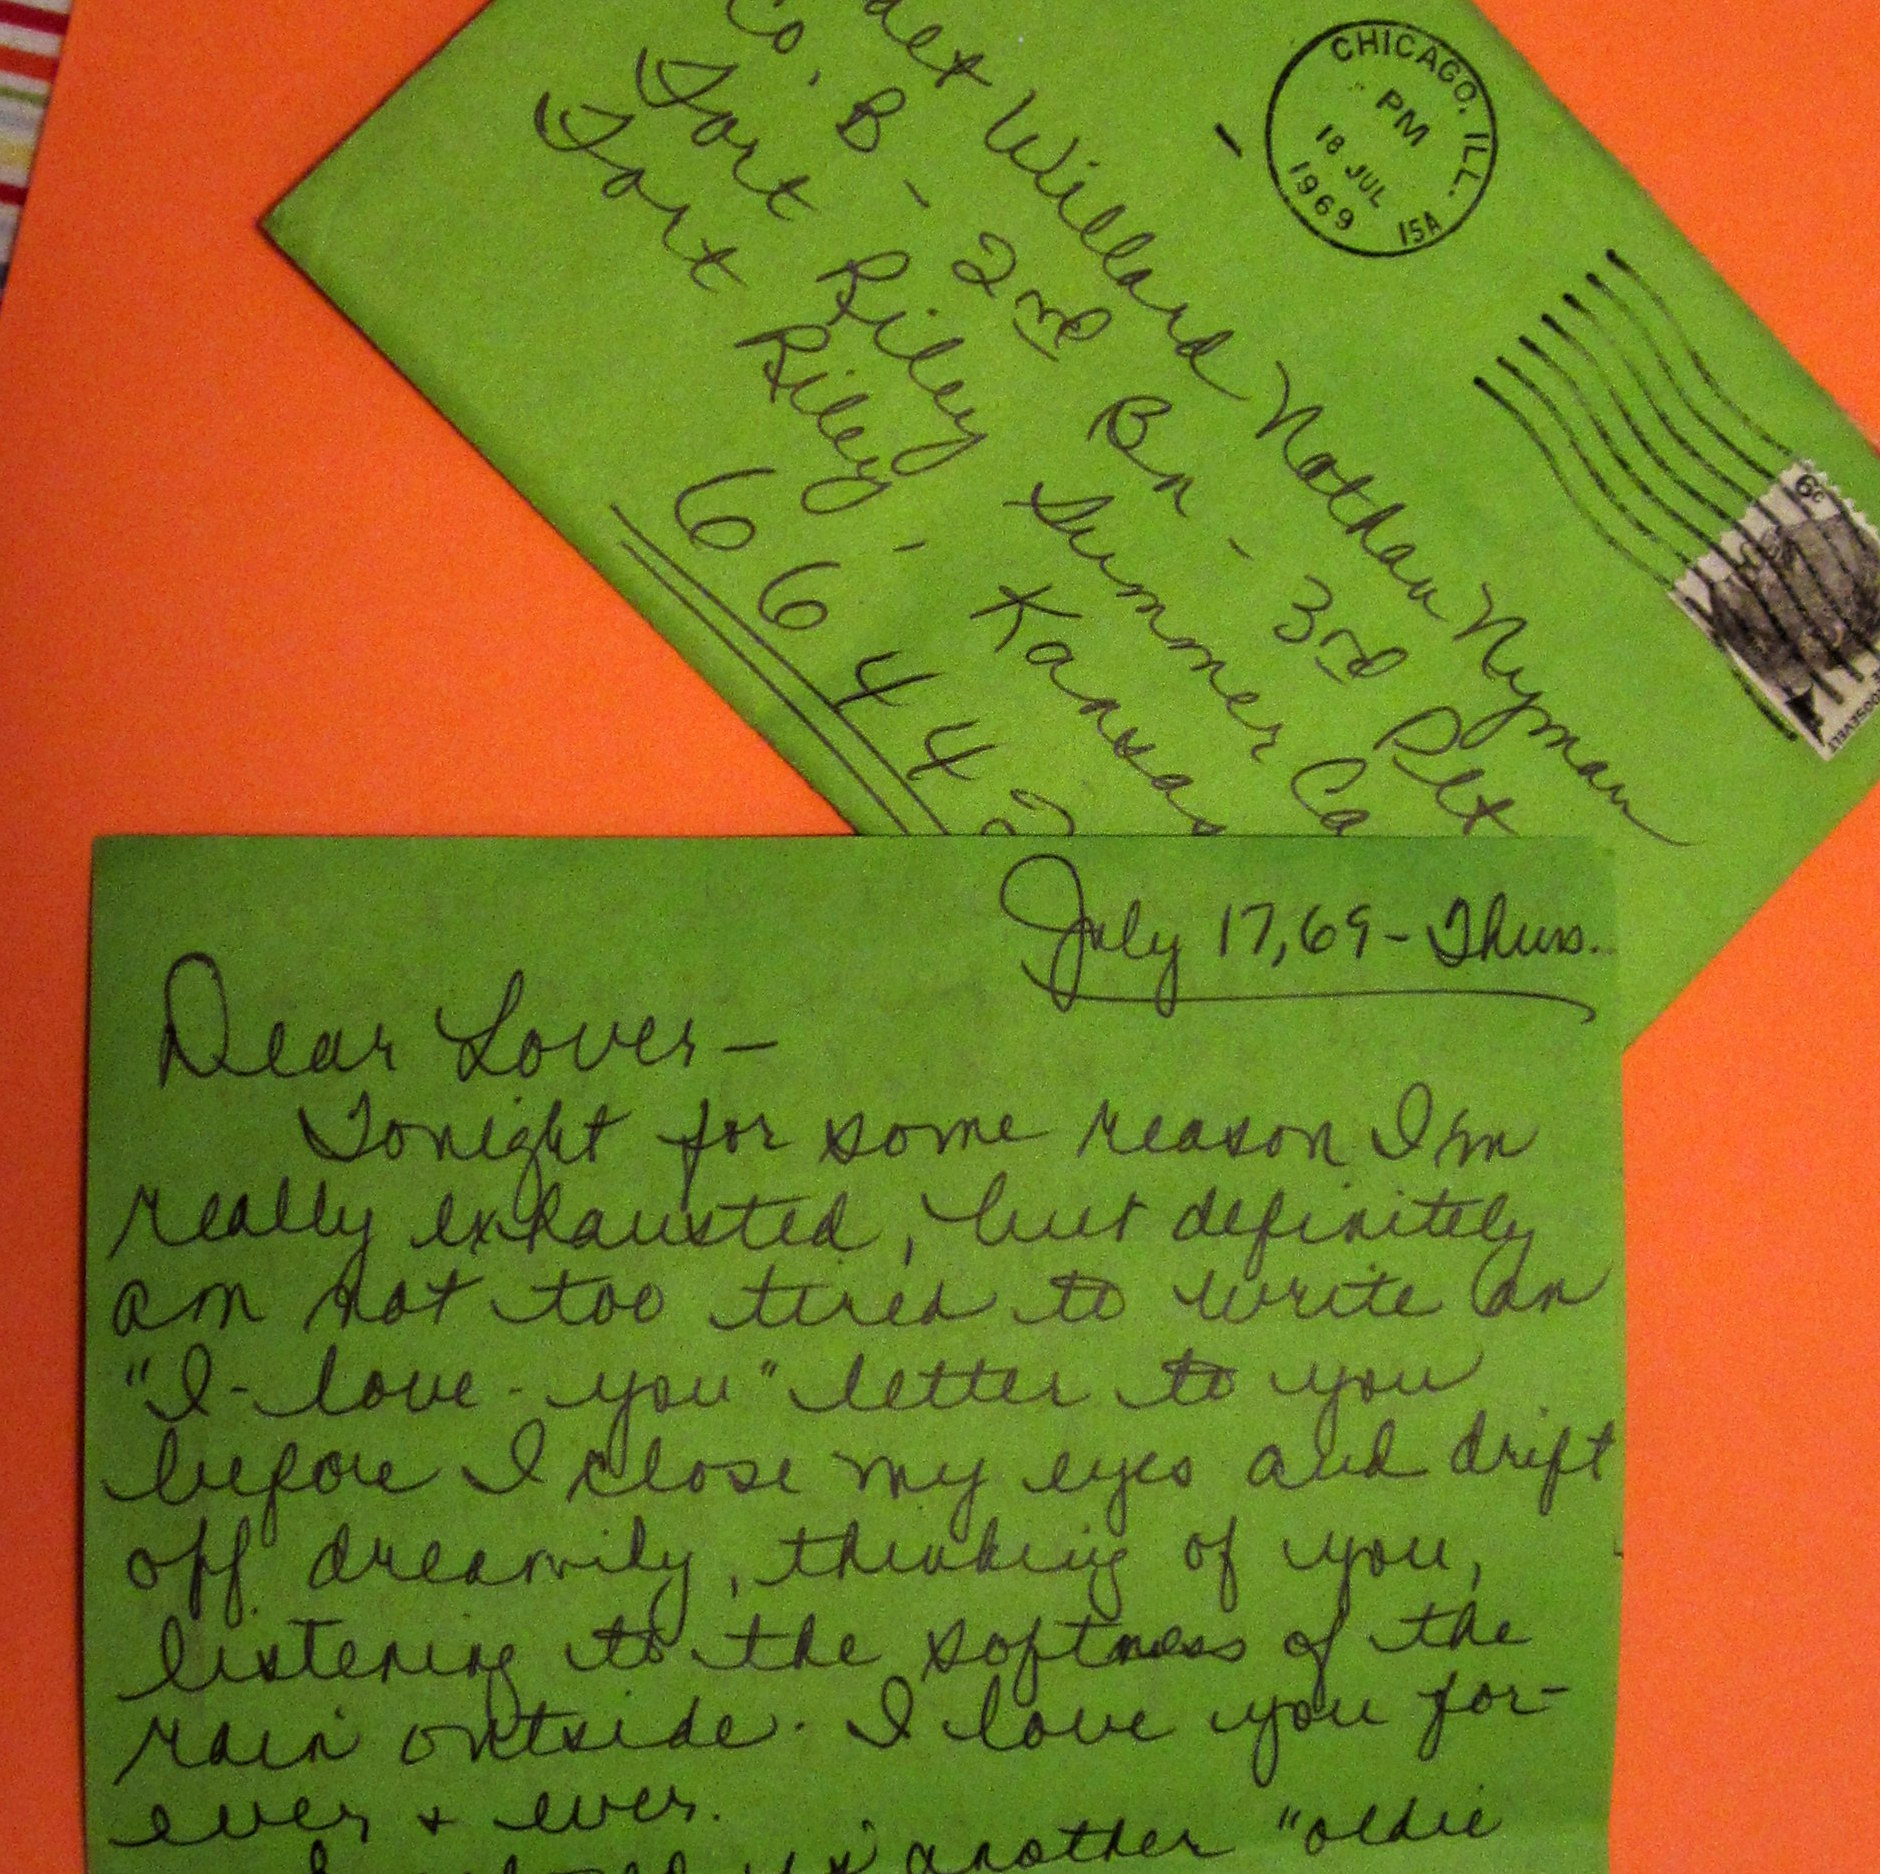 Willard Nathan Nyman
Co. B - 2nd Bn - 3rd Plt
Fort Riley Summer Ca
Fort Riley - Kansas
66442
CHICAGO, ILL.
PM
18 JUL
1969
15A
6c
ROOSEVELT
July 17, 69 - Thurs.
Dear Lover -
Tonight for some reason I'm
really exhausted, but definitely
am not too tired to write an
"I-love-you" letter to you
before I close my eyes and drift
off dreamily, thinking of you,
listening to the softness of the
rain outside. I love you for-
ever + ever.
another "oldie